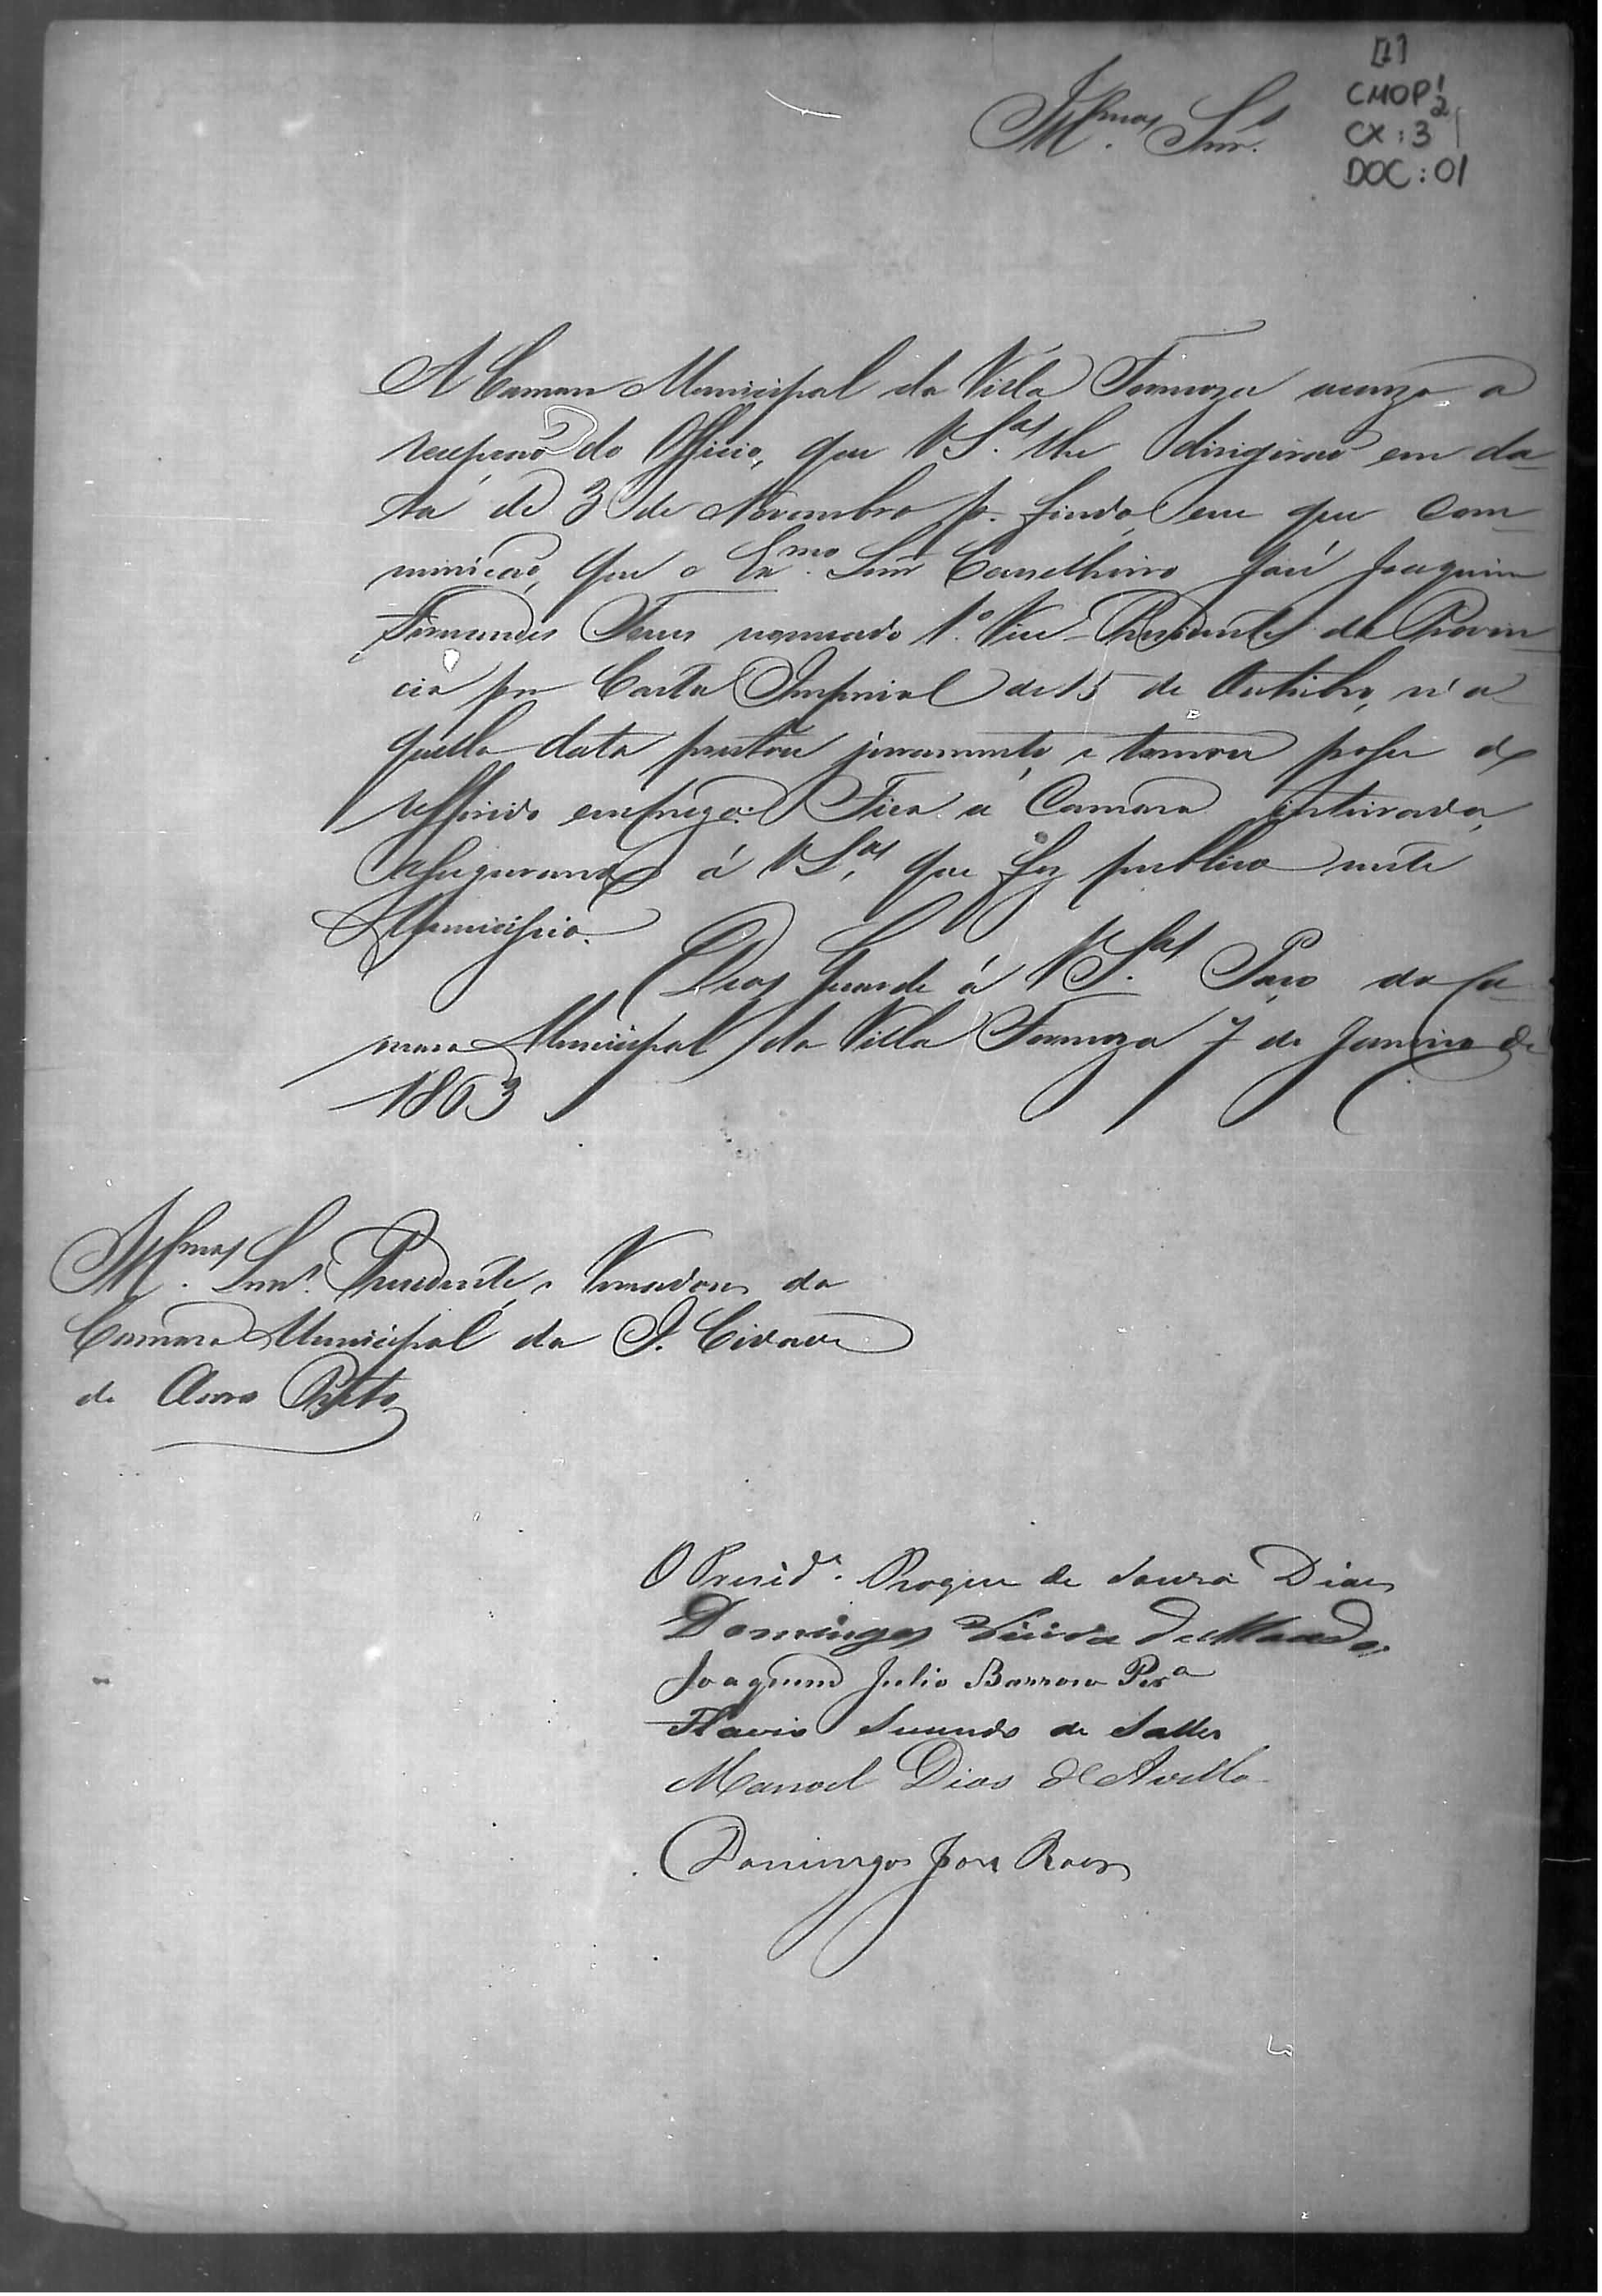 [1]
CMOP 1/2
CX: 3
DOC: 01
Illmos Snrs.
A Camara Municipal da Villa Formoza acuza a
recepção do Officio, que V.Sas. lhe dirigirão em da-
ta de 3 de Novembro p. findo, em que com-
municão, que o Exmo. Snr. Conselheiro José Joaquim
Fernandes Torres nomeado 1º. Vice-Presidente da Provin-
cia por Carta Imperial de 15 de Outubro, n'a
quella data prestou juramento, e tomou posse do
refferido emprego. Fica a Camara inteirada,
assegurando á V.Sas. que fez publico neste
Municipio.
Deos Guarde á V.Sas. Paço da Ca-
mara Municipal da Villa Formoza 7 de Janeiro de
1863
Illmos. Snrs. Presidente, e Vereadores da
Camara Municipal da I. Cidade
de Ouro Preto
O Presid.e Roque de Souza Dias
Domingos Vieira
Joaquim Julio Barroso Pera
Flavio Secundo de Salles
Manoel Dias d'Avilla
Domingos José Roiz